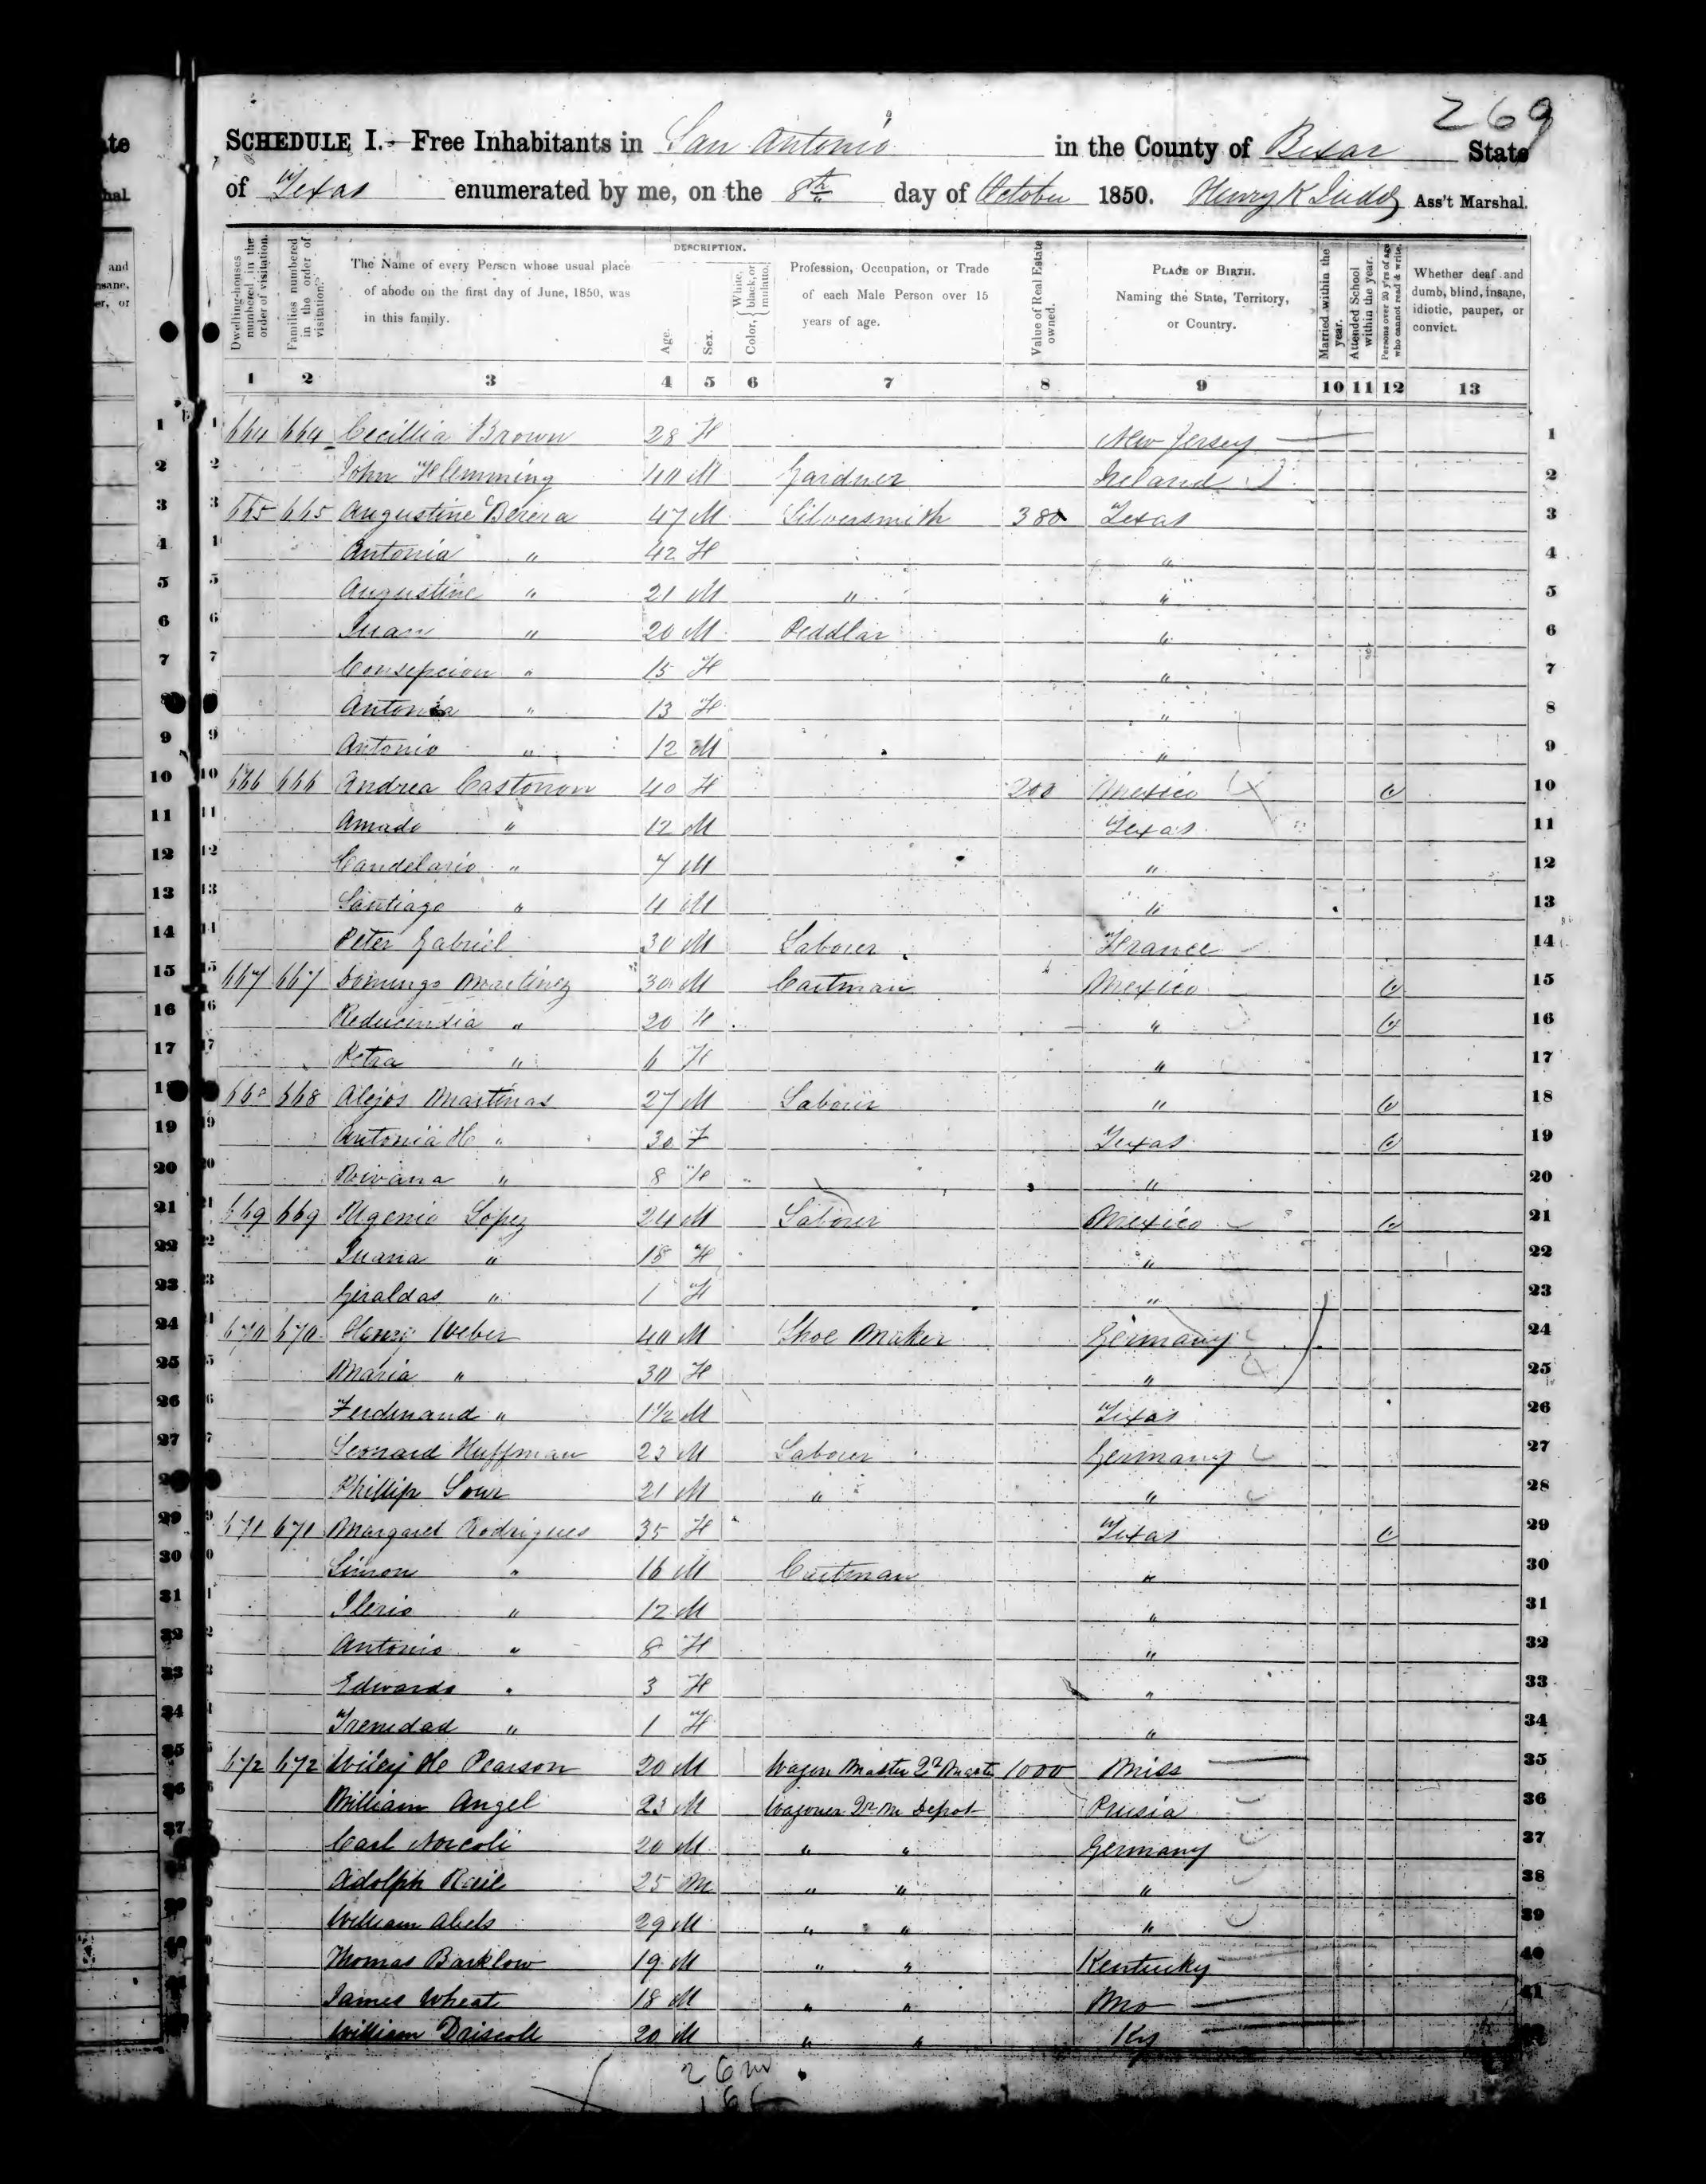 269
SCHEDULE I.—Free Inhabitants in San Antonio in the County of Bexar State
of Texas enumerated by me, on the 8th day of October 1850. Henry K Judd Ass't Marshal.
Dwelling-houses numbered in the order of visitation.
Families numbered in the order of visitation.
The Name of every Person whose usual place of abode on the first day of June, 1850, was in this family.
DESCRIPTION.
Age.
Sex.
Color, { White, black, or mulatto.
Profession, Occupation, or Trade of each Male Person over 15 years of age.
Value of Real Estate owned.
PLACE OF BIRTH. Naming the State, Territory, or Country.
Married within the year.
Attended School within the year.
Persons over 20 yrs of age who cannot read & write.
Whether deaf and dumb, blind, insane, idiotic, pauper, or convict.
1 2 3 4 5 6 7 8 9 10 11 12 13
1 664 664 Cecillia Brown 28 F New Jersey 1
2 John Flemming 40 M Gardner Ireland 2
3 665 665 Augustine Berera 47 M Silversmith 380 Texas 3
4 Antonia " 42 F " 4
5 Augustine " 21 M " " 5
6 Juan " 20 M Peddlar " 6
7 Consepcion " 15 F " 7
8 Antonia " 13 F " 8
9 Antonio " 12 M " 9
10 666 666 Andrea Castonon 40 F 200 Mexico 10
11 Amado " 12 M Texas 11
12 Candelario " 7 M " 12
13 Santiago " 4 M " 13
14 Peter Gabriel 30 M Laborer France 14
15 667 667 Domingo Martinez 30 M Cartman Mexico 15
16 Reducindia " 20 F " 16
17 Petra " 6 F " 17
18 668 668 Alejos Martinas 27 M Laborer " 18
19 Antonia H " 30 F Texas 19
20 " 8 F " 20
21 669 669 Lopez 24 M Laborer Mexico 21
22 Juana " 18 F " 22
23 Geraldas " 1 F " 23
24 670 670 Henry Weber 40 M Shoe Maker Germany 24
25 Maria " 30 F " 25
26 Ferdinand " 1 1/2 M Texas 26
27 Leonard Huffman 23 M Laborer Germany 27
28 Phillip Sour 21 M " " 28
29 671 671 Margaret Rodrigues 35 F Texas 29
30 Simon " 16 M Cartman " 30
31 Ilerio " 12 M " 31
32 Antonio " 8 F " 32
33 Edwardo " 3 F " 33
34 Trenidad " 1 F " 34
35 672 672 Wiley H Pearson 20 M Wagon Master 1000 Miss 35
36 William Angel 23 M Wagoner Qr M Depot Prusia 36
37 Carl Norcoli 20 M " " Germany 37
38 Adolph 25 M " " " 38
39 William Abels 29 M " " " 39
40 Thomas Barklow 19 M " " Kentucky 40
41 James Wheat 18 M " " Mo 41
William Driscoll 20 M " " Ky